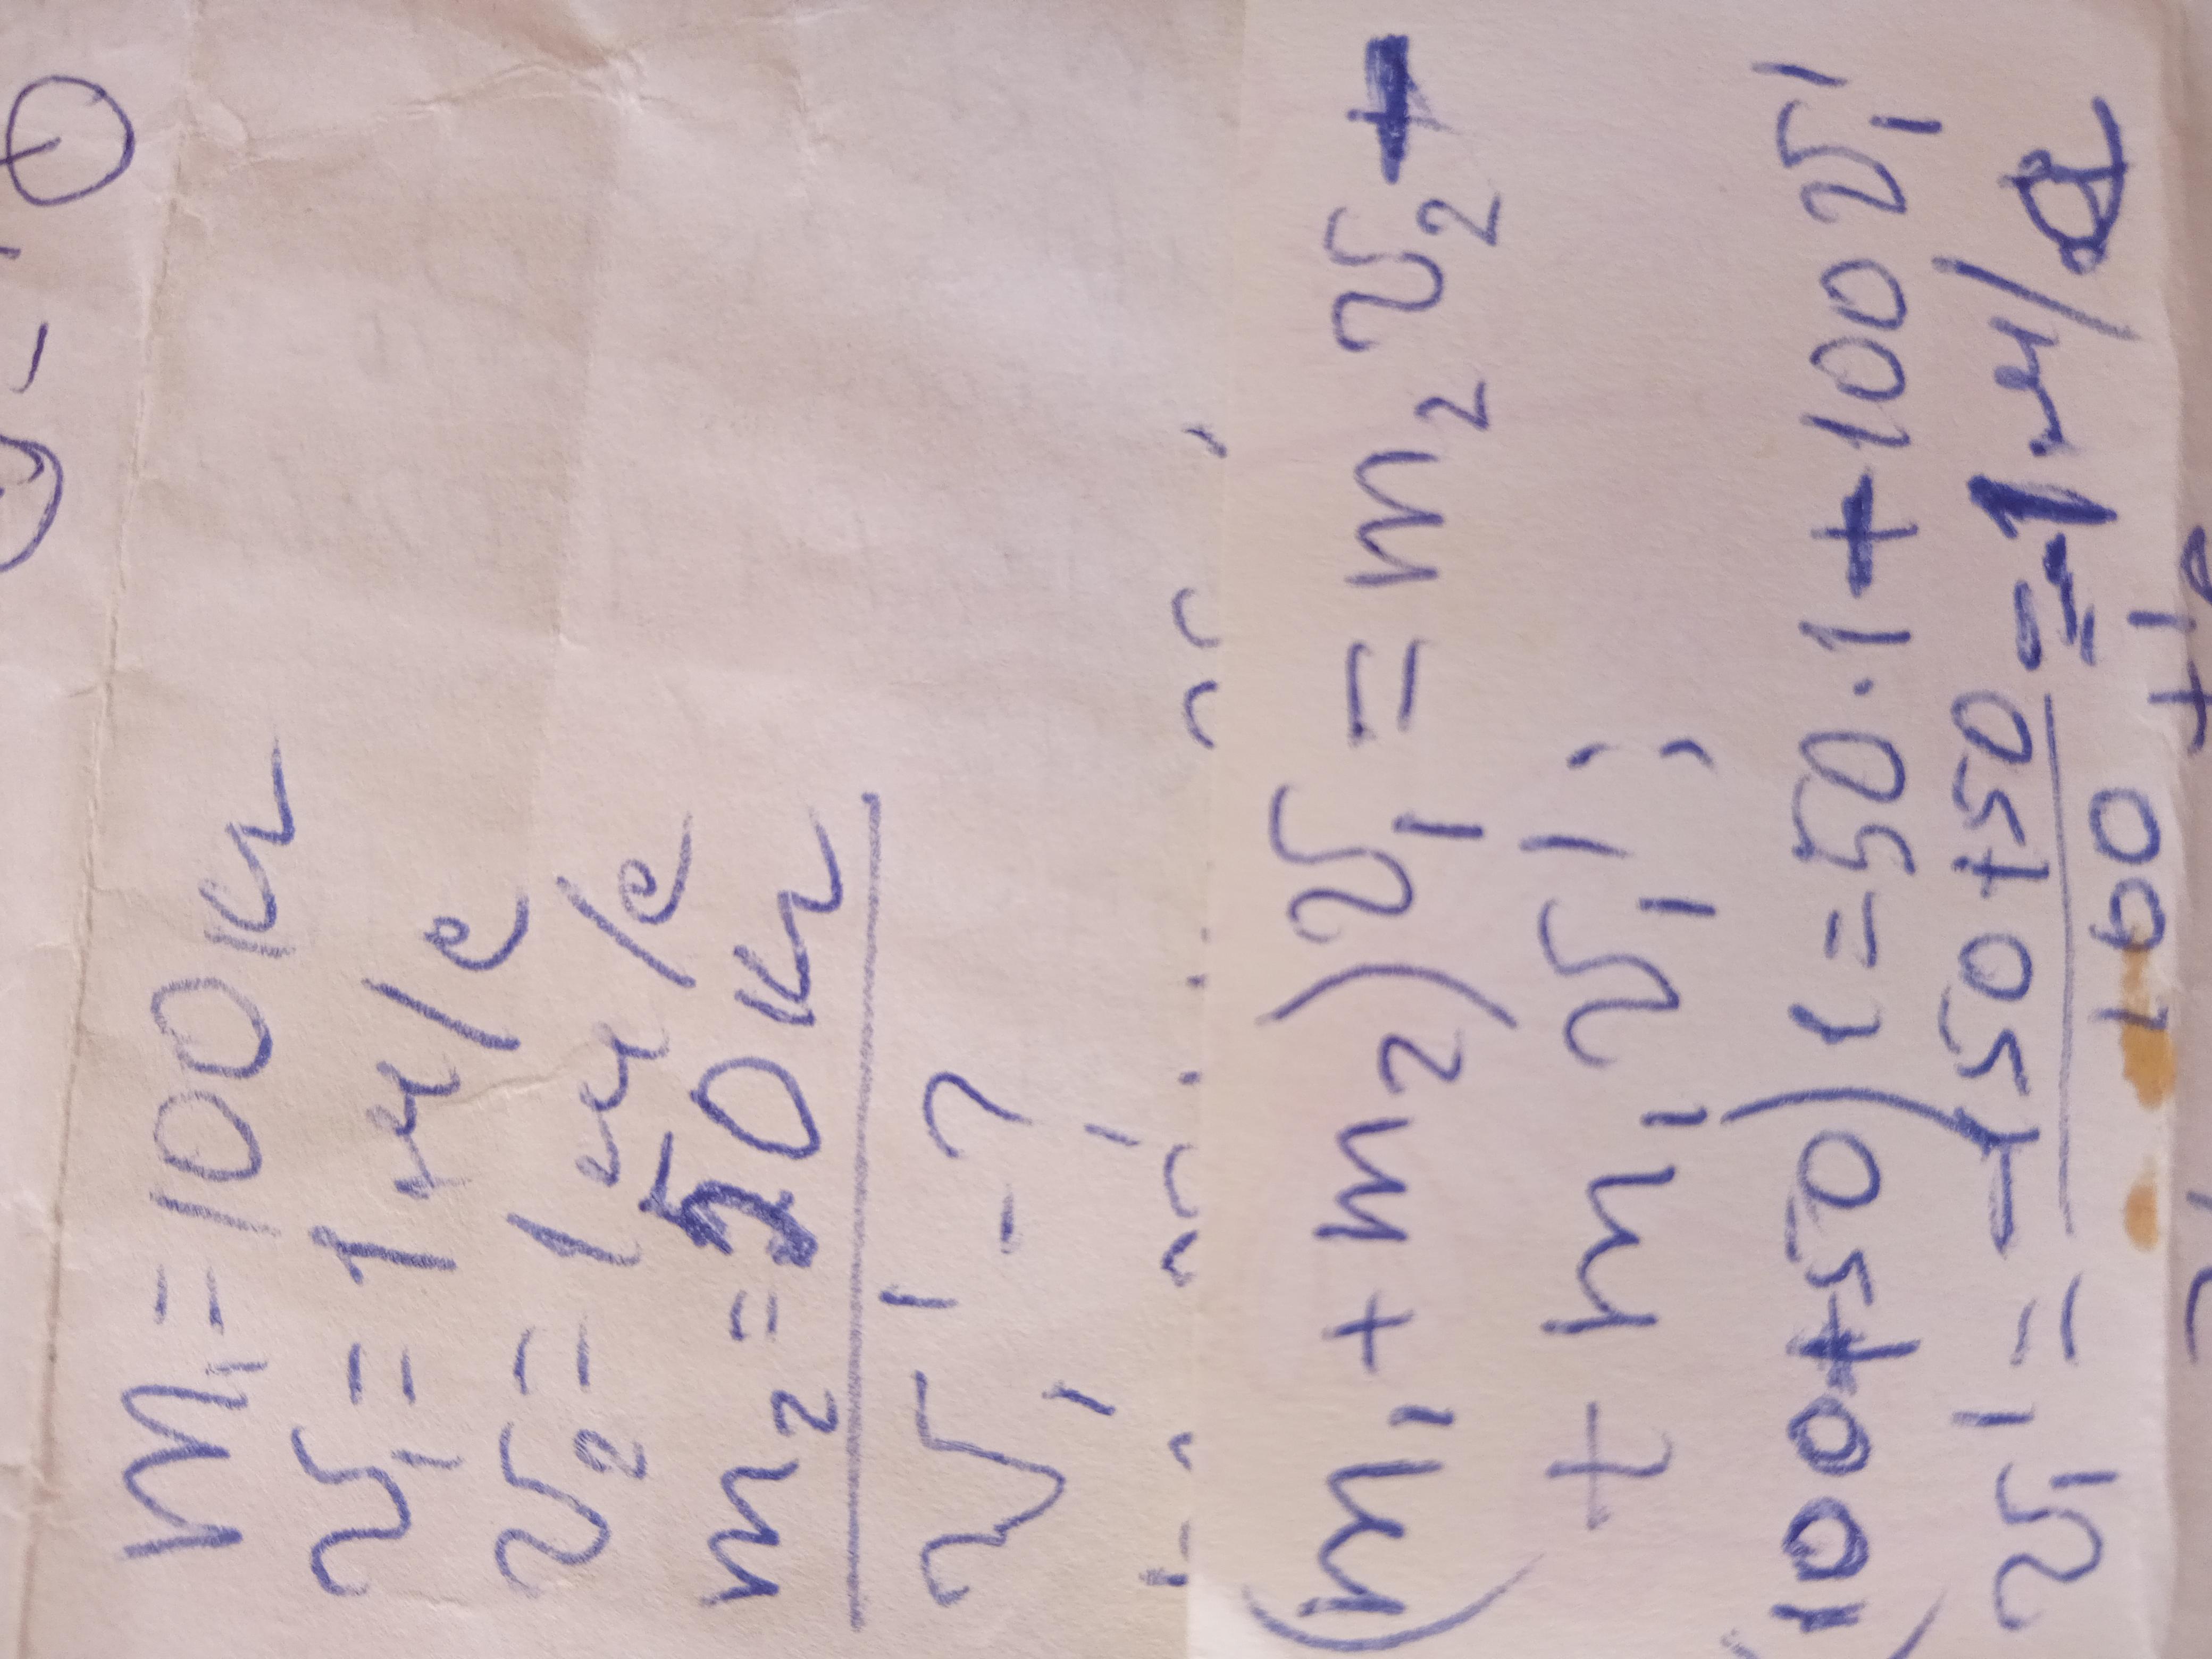 m₁ = 100 кг
v₁ = 1 м/с
v₂ = 1 м/с
m₂ = 50 кг
v₁' - ?
(m₁ + m₂) v₁ = m₂ v₂ +
+ m₁ v₁' ;
(100+50) 1 = 50 · 1 + 100 v₁'
v₁' = 150 + 50 / 100 = 1 м/с